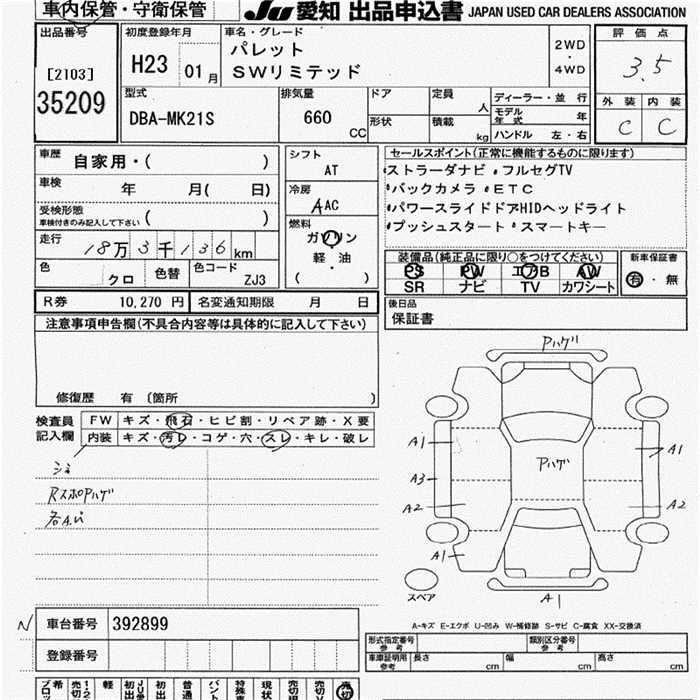 車内保管・守衛保管
JU 愛知 出品申込書 JAPAN USED CAR DEALERS ASSOCIATION
出品番号
[2103]
35209
初度登録年月
H23 01 月
車名・グレード
パレット
SWリミテッド
2WD
・
4WD
評価点
3.5
外装 内装
C C
型式
DBA-MK21S
排気量
660
CC
ドア
形状
定員
人
積載
kg
ディーラー・並行
モデル年式 年
ハンドル 左・右
車歴
自家用・( )
車検
年 月( 日)
受検形態
車検付きのみ記入して下さい ( )
走行
18万3千136 km
色
クロ
色替
色コード
ZJ3
シフト
AT
冷房
AAC
燃料
ガソリン
軽・油
( ・ )
セールスポイント(正常に機能するものに限ります)
ストラーダナビ ・フルセグTV
・バックカメラ ・ETC
・パワースライドドアHIDヘッドライト
・プッシュスタート ・スマートキー
装備品(純正品に限り○をつけてください)
PS PW エアB AW
SR ナビ TV カワシート
新車保証書
有・無
後日品
保証書
R券 10,270 円 名変通知期限 月 日
注意事項申告欄(不具合内容等は具体的に記入して下さい)
修復歴 有 〔箇所 〕
検査員
記入欄
FW キズ・飛石・ヒビ割・リペア跡・X要
内装 キズ・汚レ・コゲ・穴・スレ・キレ・破レ
シミ
RスポPハゲ
Pハゲ
Pハゲ
A1
A3
A2
A1
A1
A2
A1
スペア
A-キズ E-エクボ U-凹み W-補修跡 S-サビ C-腐食 XX-交換済
N
車台番号 392899
登録番号
形式指定番号
参考
類別区分番号
参考
車庫証明用
参考
長さ cm 幅 cm 高さ cm